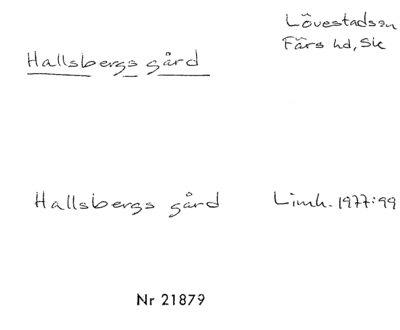 Lövestads sn
Färs hd, Sk
Hallsbergs gård
Hallsbergs gård Limh. 1977:99
Nr 21879